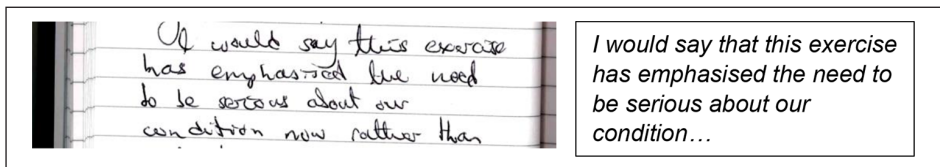 I would say this exercise
has emphasised the need
to be serious about our
condition now rather than
I would say that this exercise
has emphasised the need to
be serious about our
condition…